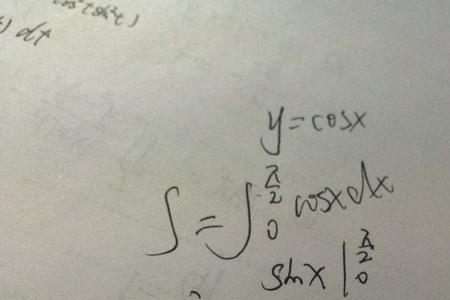 cos²t sin²t)
) dt
y=cosx
∫=∫₀^{π/2} cosxdx
sinx |₀^{π/2}